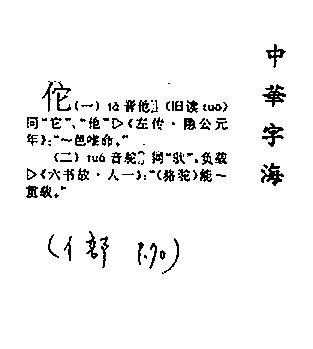 中華字海
佗(一) tā 音他 (旧读 tuō)
同“它”、“他”▷《左传·隐公元
年》:“～邑唯命。”
(二) tuó 音驼 同“驮”,负载
▷《六书故·人一》:“(骆驼)能～
贯载。”
(亻部 P.70)